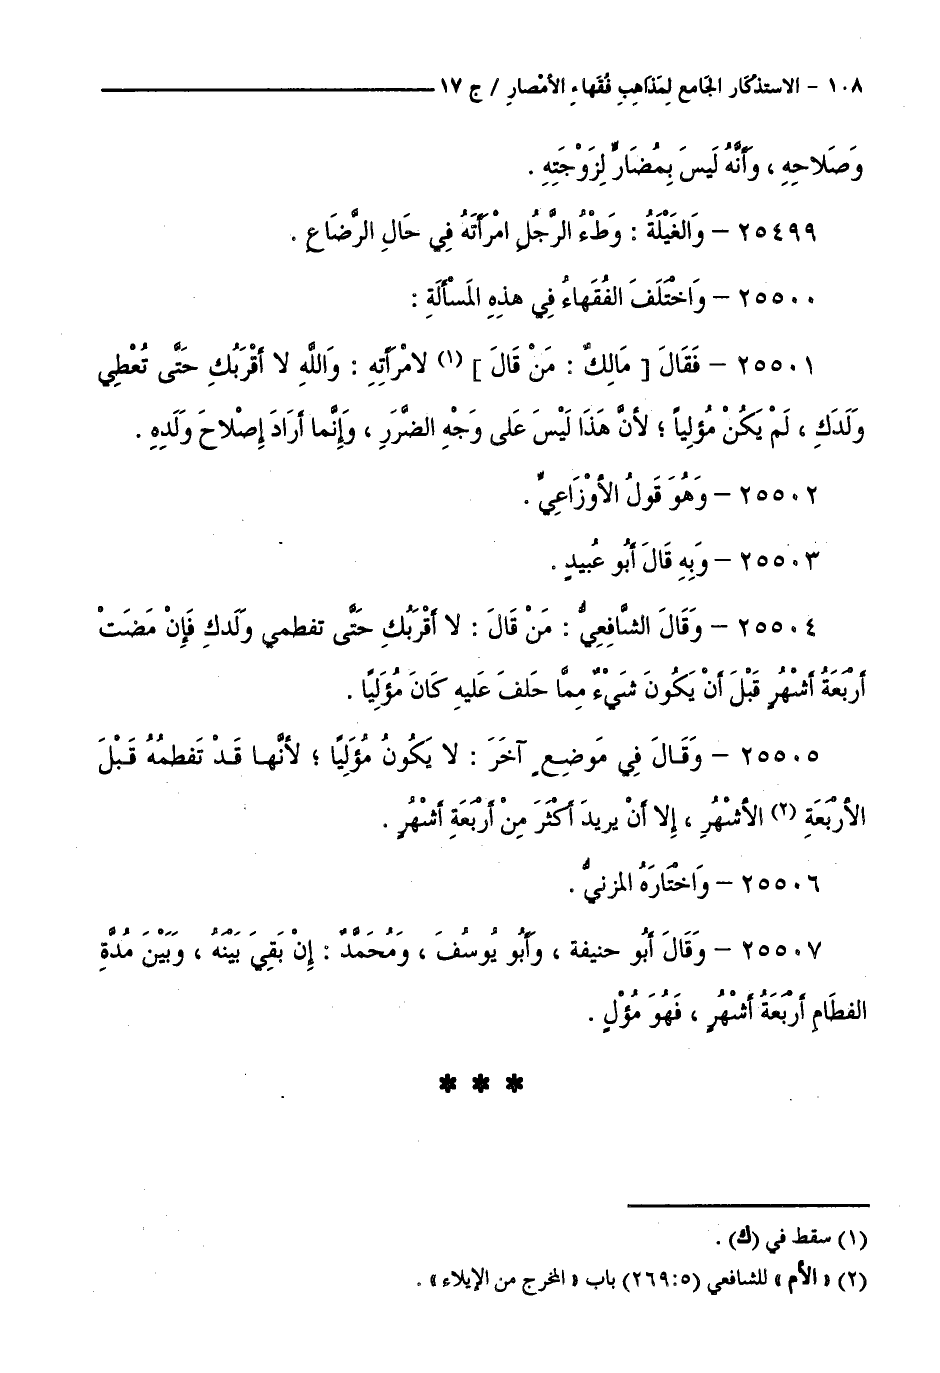 ١٠٨ - الاستذكار الجامع لِمَذاهِبِ فُقَهاءِ الأمْصارِ / ج ١٧
وَصَلاحِهِ ، وَأَنَّهُ لَيسَ بِمُضَارٍّ لِزَوْجَتِهِ .
٢٥٤٩٩ - وَالغَيْلَةُ : وَطْءُ الرَّجُلِ امْرَأَتَهُ فِي حَالِ الرَّضَاعِ .
٢٥٥٠٠ - وَاخْتَلَفَ الفُقَهاءُ فِي هذِهِ المَسْأَلَةِ :
٢٥٥٠١ - فَقَالَ [ مَالِكٌ : مَنْ قَالَ ] (١) لامْرأتِهِ : وَاللَّهِ لا أَقْرَبُكِ حَتَّى تُعْطِي
وَلَدَكِ ، لَمْ يَكُنْ مُؤلِياً ؛ لأنَّ هَذَا لَيْسَ عَلى وَجْهِ الضَّرَرِ ، وَإِنَّما أرَادَ إِصْلاحَ وَلَدِهِ .
٢٥٥٠٢ - وَهُوَ قَولُ الأوْزَاعِيِّ .
٢٥٥٠٣ - وَبِهِ قَالَ أَبُو عُبيدٍ .
٢٥٥٠٤ - وَقَالَ الشَّافِعِيُّ : مَنْ قَالَ : لا أَقْرَبُكِ حَتَّى تفطمي وَلَدكِ فَإِنْ مَضَتْ
أَرْبَعَةُ أَشْهُرٍ قَبْلَ أَنْ يَكُونَ شَيْءٌ مِمَّا حَلفَ عَليهِ كَانَ مُؤَلِيًا .
٢٥٥٠٥ - وَقَالَ فِي مَوضِعٍ آخَرَ : لا يَكُونُ مُؤَلِيًا ؛ لأنَّها قَدْ تَفطمُهُ قَبْلَ
الأَرْبَعَةِ (٢) الأشْهُرِ ، إِلا أَنْ يريدَ أَكْثَرَ مِنْ أَرْبَعَةِ أَشْهُرٍ .
٢٥٥٠٦ - وَاخْتَارَهُ المزنيُّ .
٢٥٥٠٧ - وَقَالَ أَبُو حنيفة ، وأَبُو يُوسُفَ ، وَمُحَمَّدٌ : إِنْ بَقِيَ بَيْنَهُ ، وَبَيْنَ مُدَّةِ
الفطَامِ أَرْبَعَةُ أَشْهُرٍ ، فَهُوَ مُؤْلٍ .
* * *
(١) سقط في (ك) .
(٢) « الأم » للشافعي (٥: ٢٦٩) باب « المخرج من الإيلاء » .